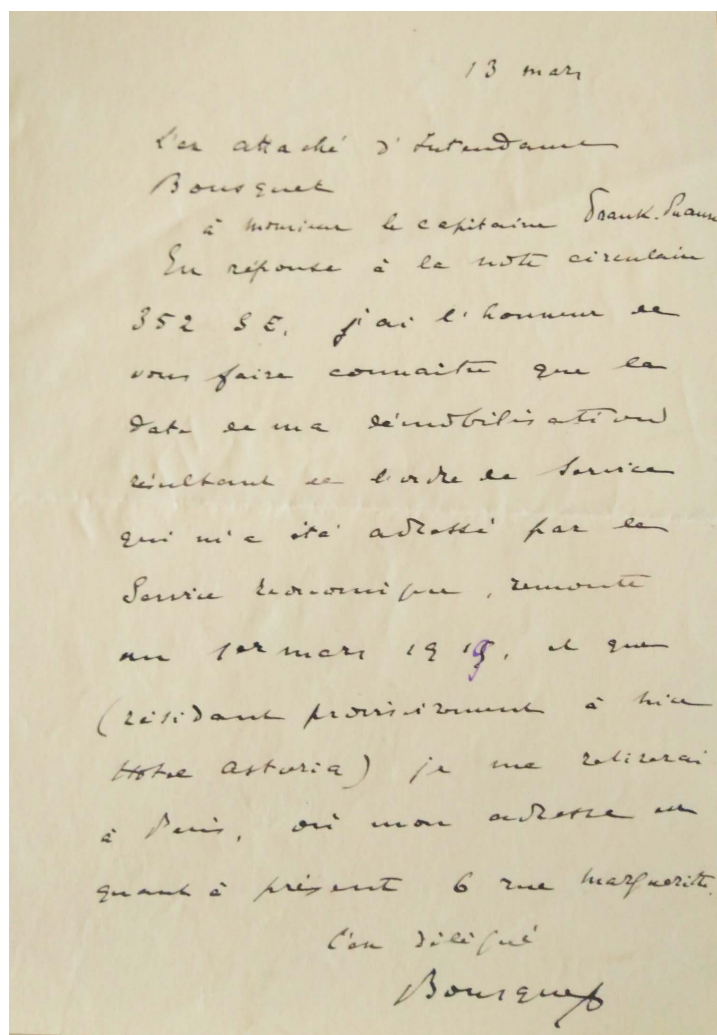 13 mars
L'ex attaché d'Intendance
Bousquet
à monsieur le capitaine Frank-
En réponse à la note circulaire
352 S E. j'ai l'honneur de
vous faire connaitre que la
date de ma démobilisation
résultant de l'ordre de service
qui m'a été adressé par le
Service Economique, remonte
au 1er mars 1919, et que
(résidant provisoirement à Nice
Hotel Astoria) je me retirerai
à Paris, où mon adresse est
quant à présent 6 rue Margueritte.
L'ex délégué
Bousquet